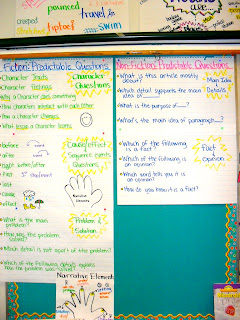 pounced
travel is
swim
Fiction: Predictable Questions
Character Traits
Character Feelings
Why a Character does something
How characters interact with each other
How a character changes
What lesson a character learns
Character
Questions
before
after
first
last
cause
effect
3rd step/event
Cause/effect
Sequence events
Questions
Narrative Elements
What is the main problem?
How was the problem solved?
Which detail is not a part of the problem?
Which of the following details explains how the problem was solved?
Problem &
Solution
Narrative Elements
Non-Fiction: Predictable Questions
What is this article mostly about?
Which detail supports the main idea of
What is the purpose of
What's the main idea of paragraph
Main Idea
Details
Which of the following is a fact?
Which of the following is an opinion?
Which word tells you it is an opinion?
How do you know it is a fact?
Fact
Opinion